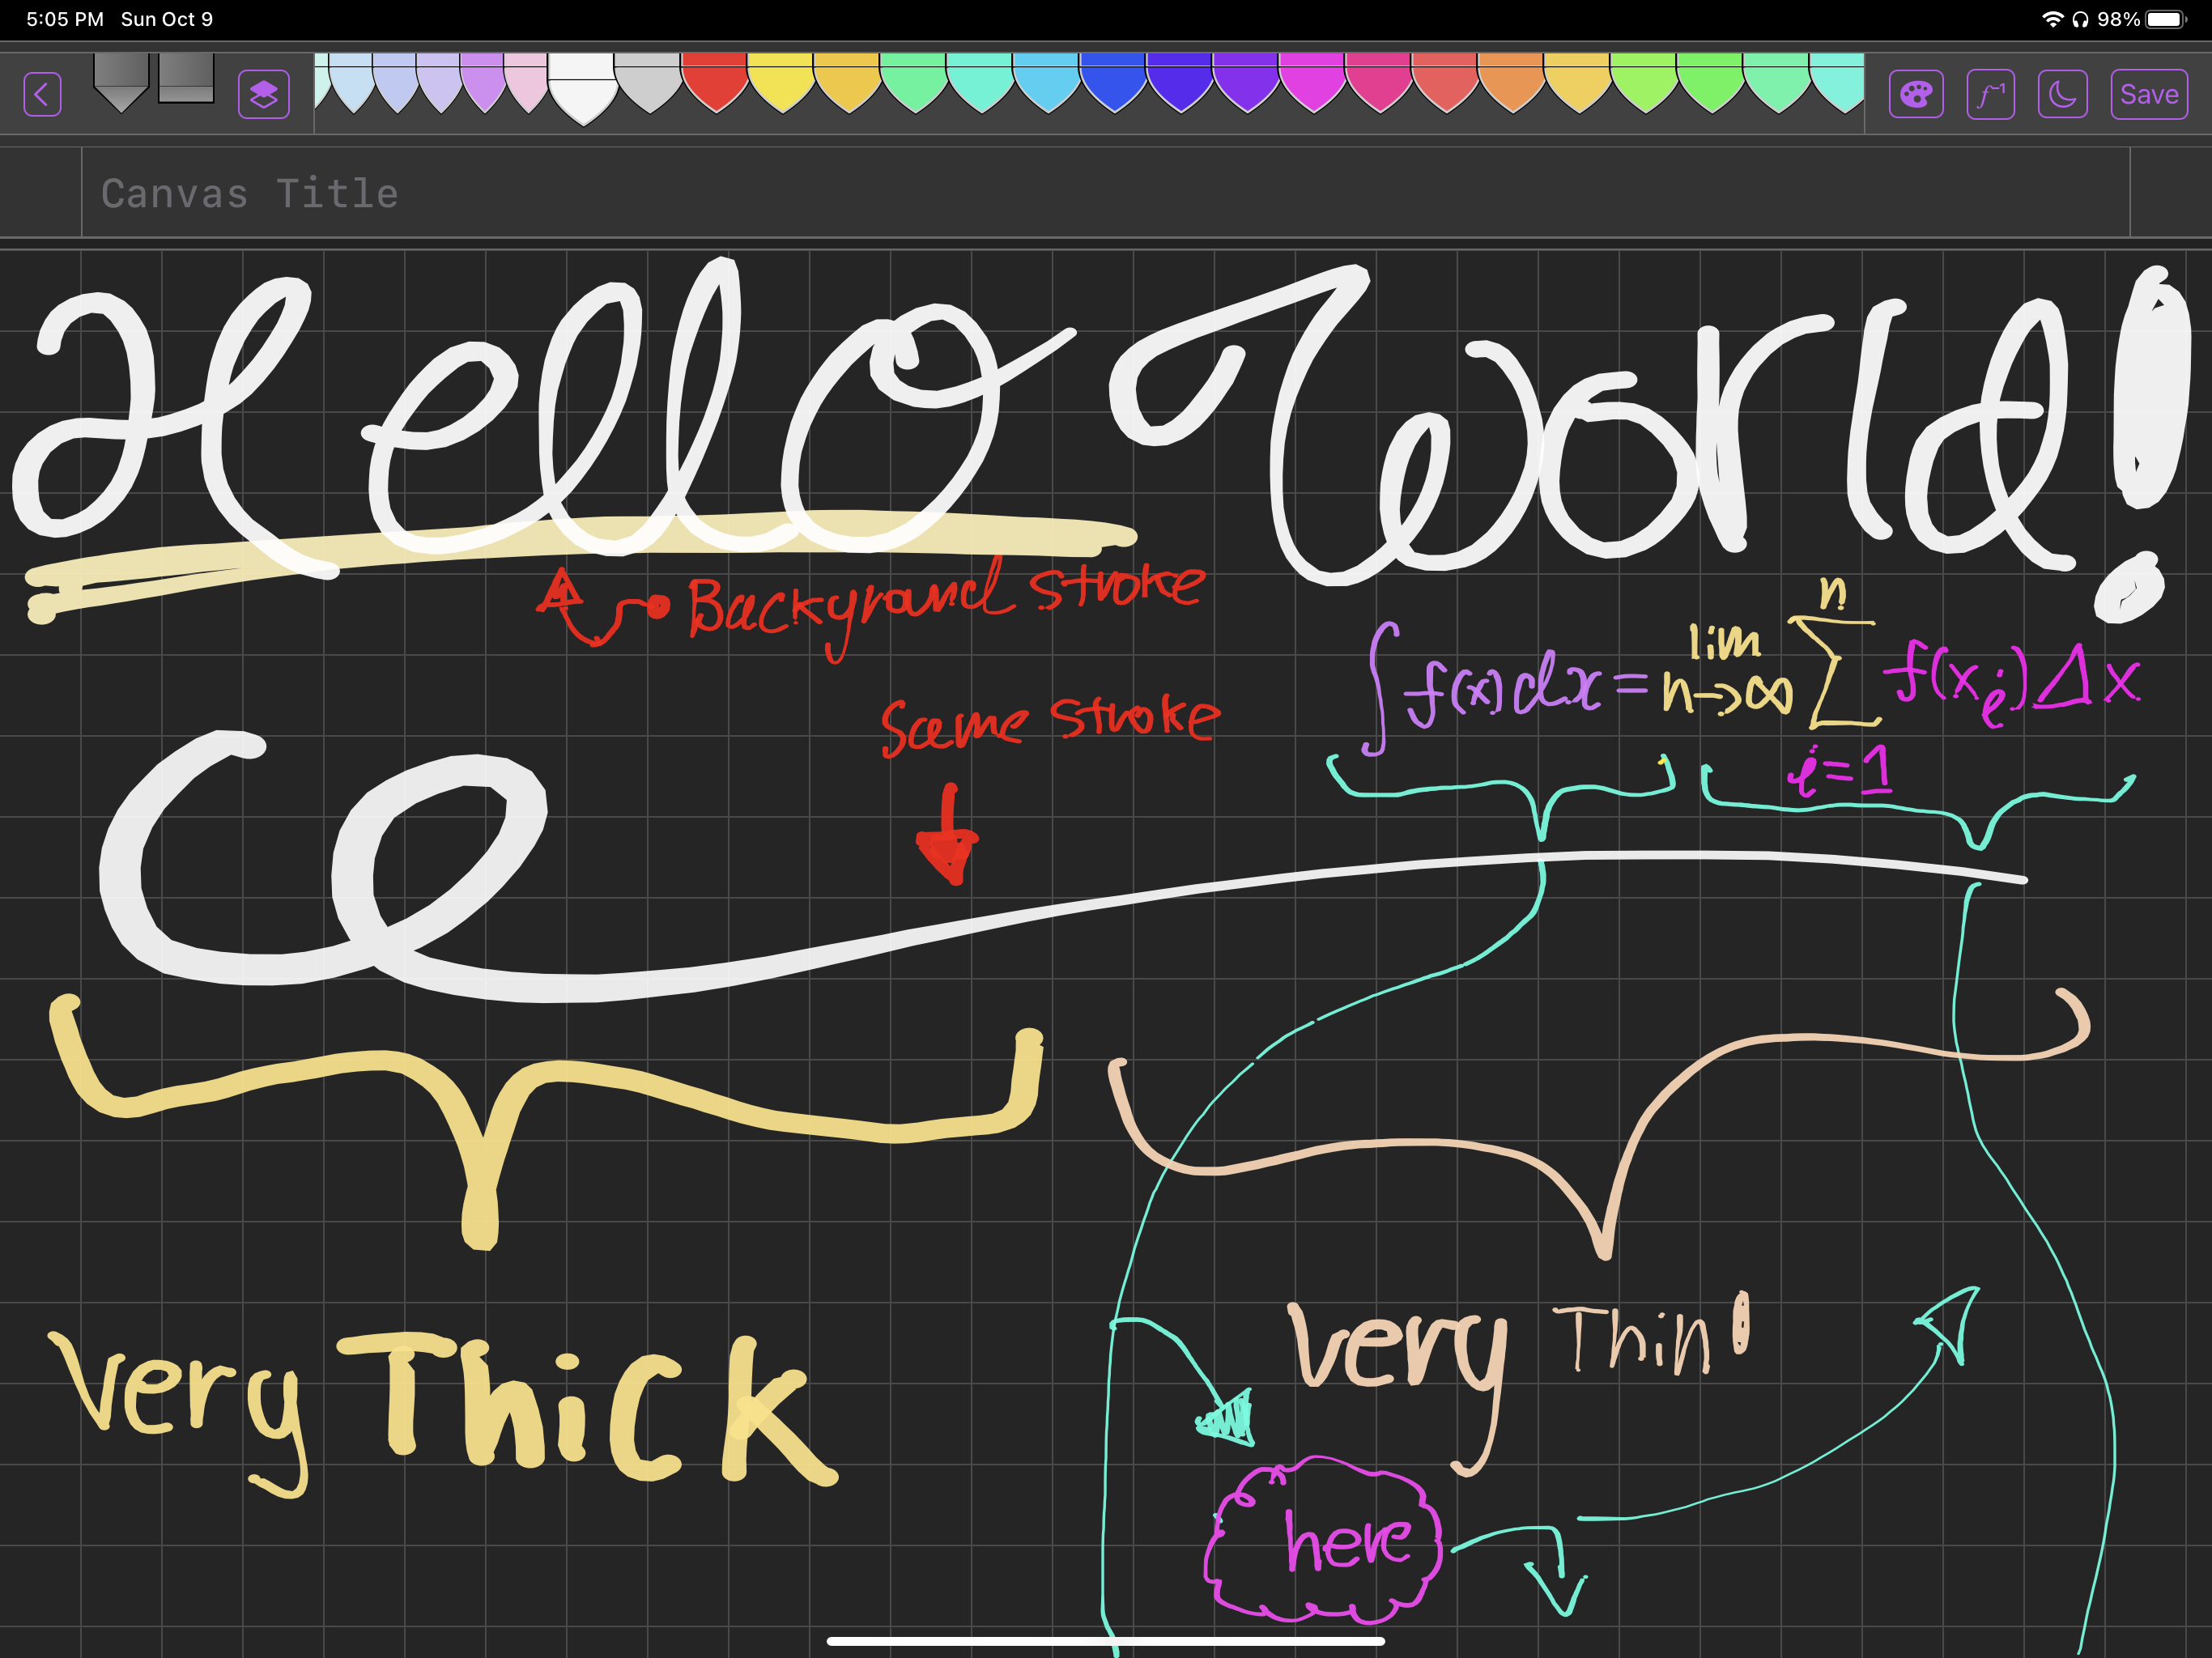 5:05 PM Sun Oct 9 98%
f⁻¹ Save
Canvas Title
Hello World!
Background stroke
∫f(x)dx = lim n→∞ n Σ i=1 f(xᵢ)Δx
Same stroke
Very Thick
Very Thin!
here